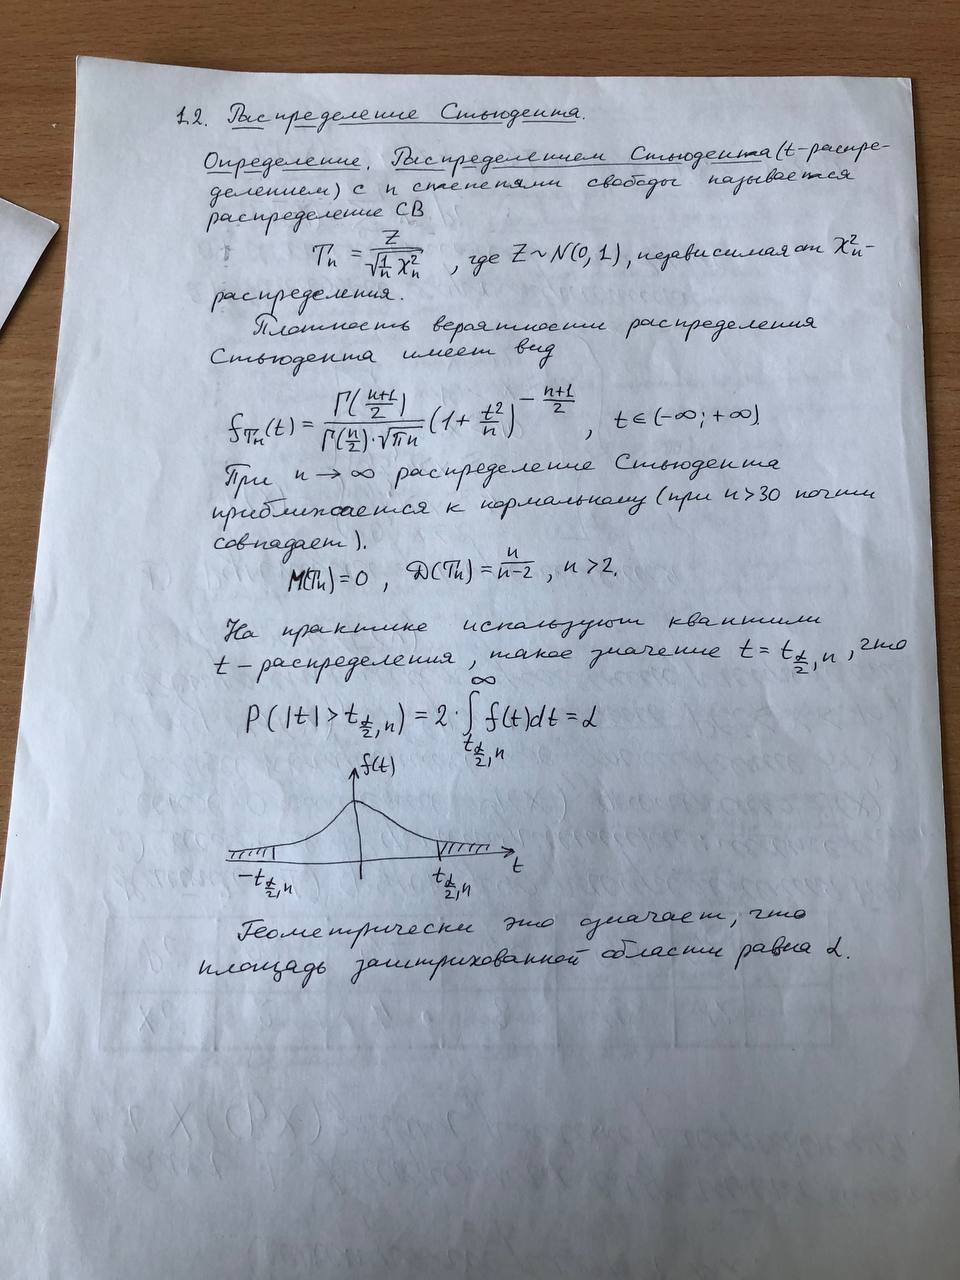 1.2. Распределение Стьюдента.
Определение. Распределением Стьюдента (t-распре-
делением) с n степенями свободы называется
распределение СВ
Tₙ = Z / √(1/n χ²ₙ) , где Z ~ N(0, 1), независимая от χ²ₙ-
распределения.
Плотность вероятности распределения
Стьюдента имеет вид
f_Tₙ(t) = Γ((n+1)/2) / (Γ(n/2)·√(πn)) (1 + t²/n)^(-(n+1)/2) , t ∈ (-∞; +∞).
При n → ∞ распределение Стьюдента
приближается к нормальному (при n > 30 почти
совпадает).
M(Tₙ) = 0 , D(Tₙ) = n/(n-2) , n > 2.
На практике используют квантили
t-распределения, такое значение t = t_(α/2, n) , что
P(|t| > t_(α/2, n)) = 2 · ∫_(t_(α/2, n))^∞ f(t)dt = α
f(t)
t
-t_(α/2, n) t_(α/2, n)
Геометрически это означает, что
площадь заштрихованной области равна α.